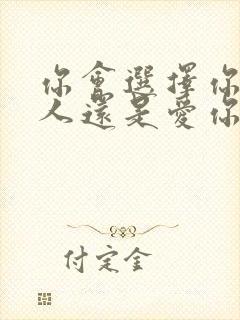 你會選擇你
人還是愛你
付定金